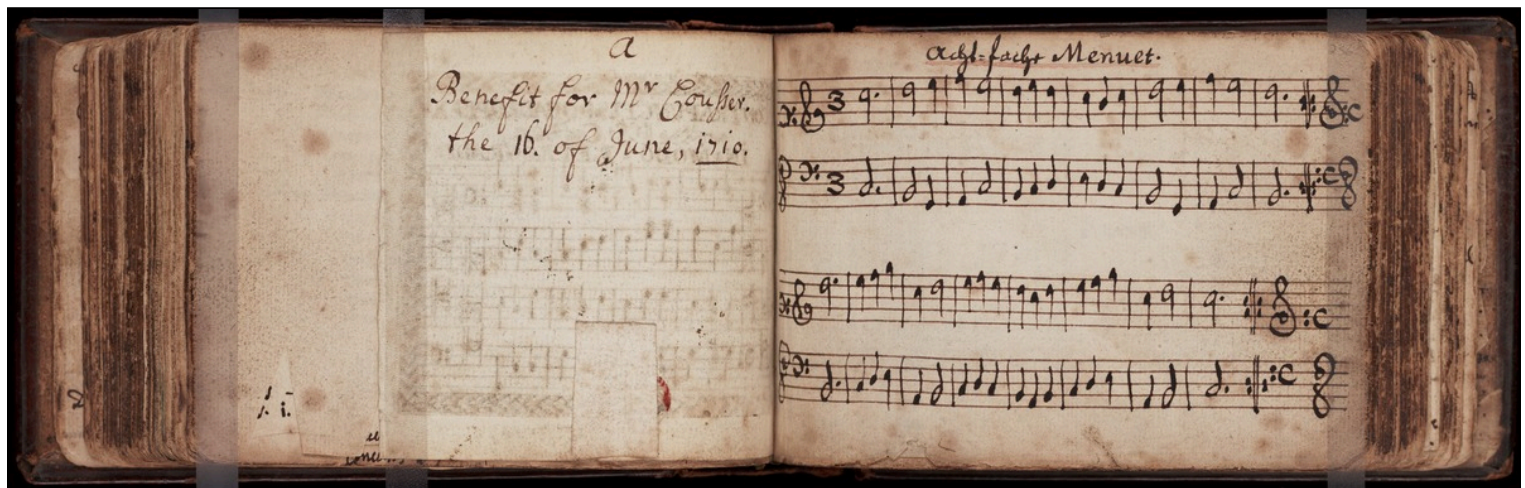 a
Benefit for Mr Cousser.
the 16. of June, 1710.
Acht-fache Menuet.
3
3